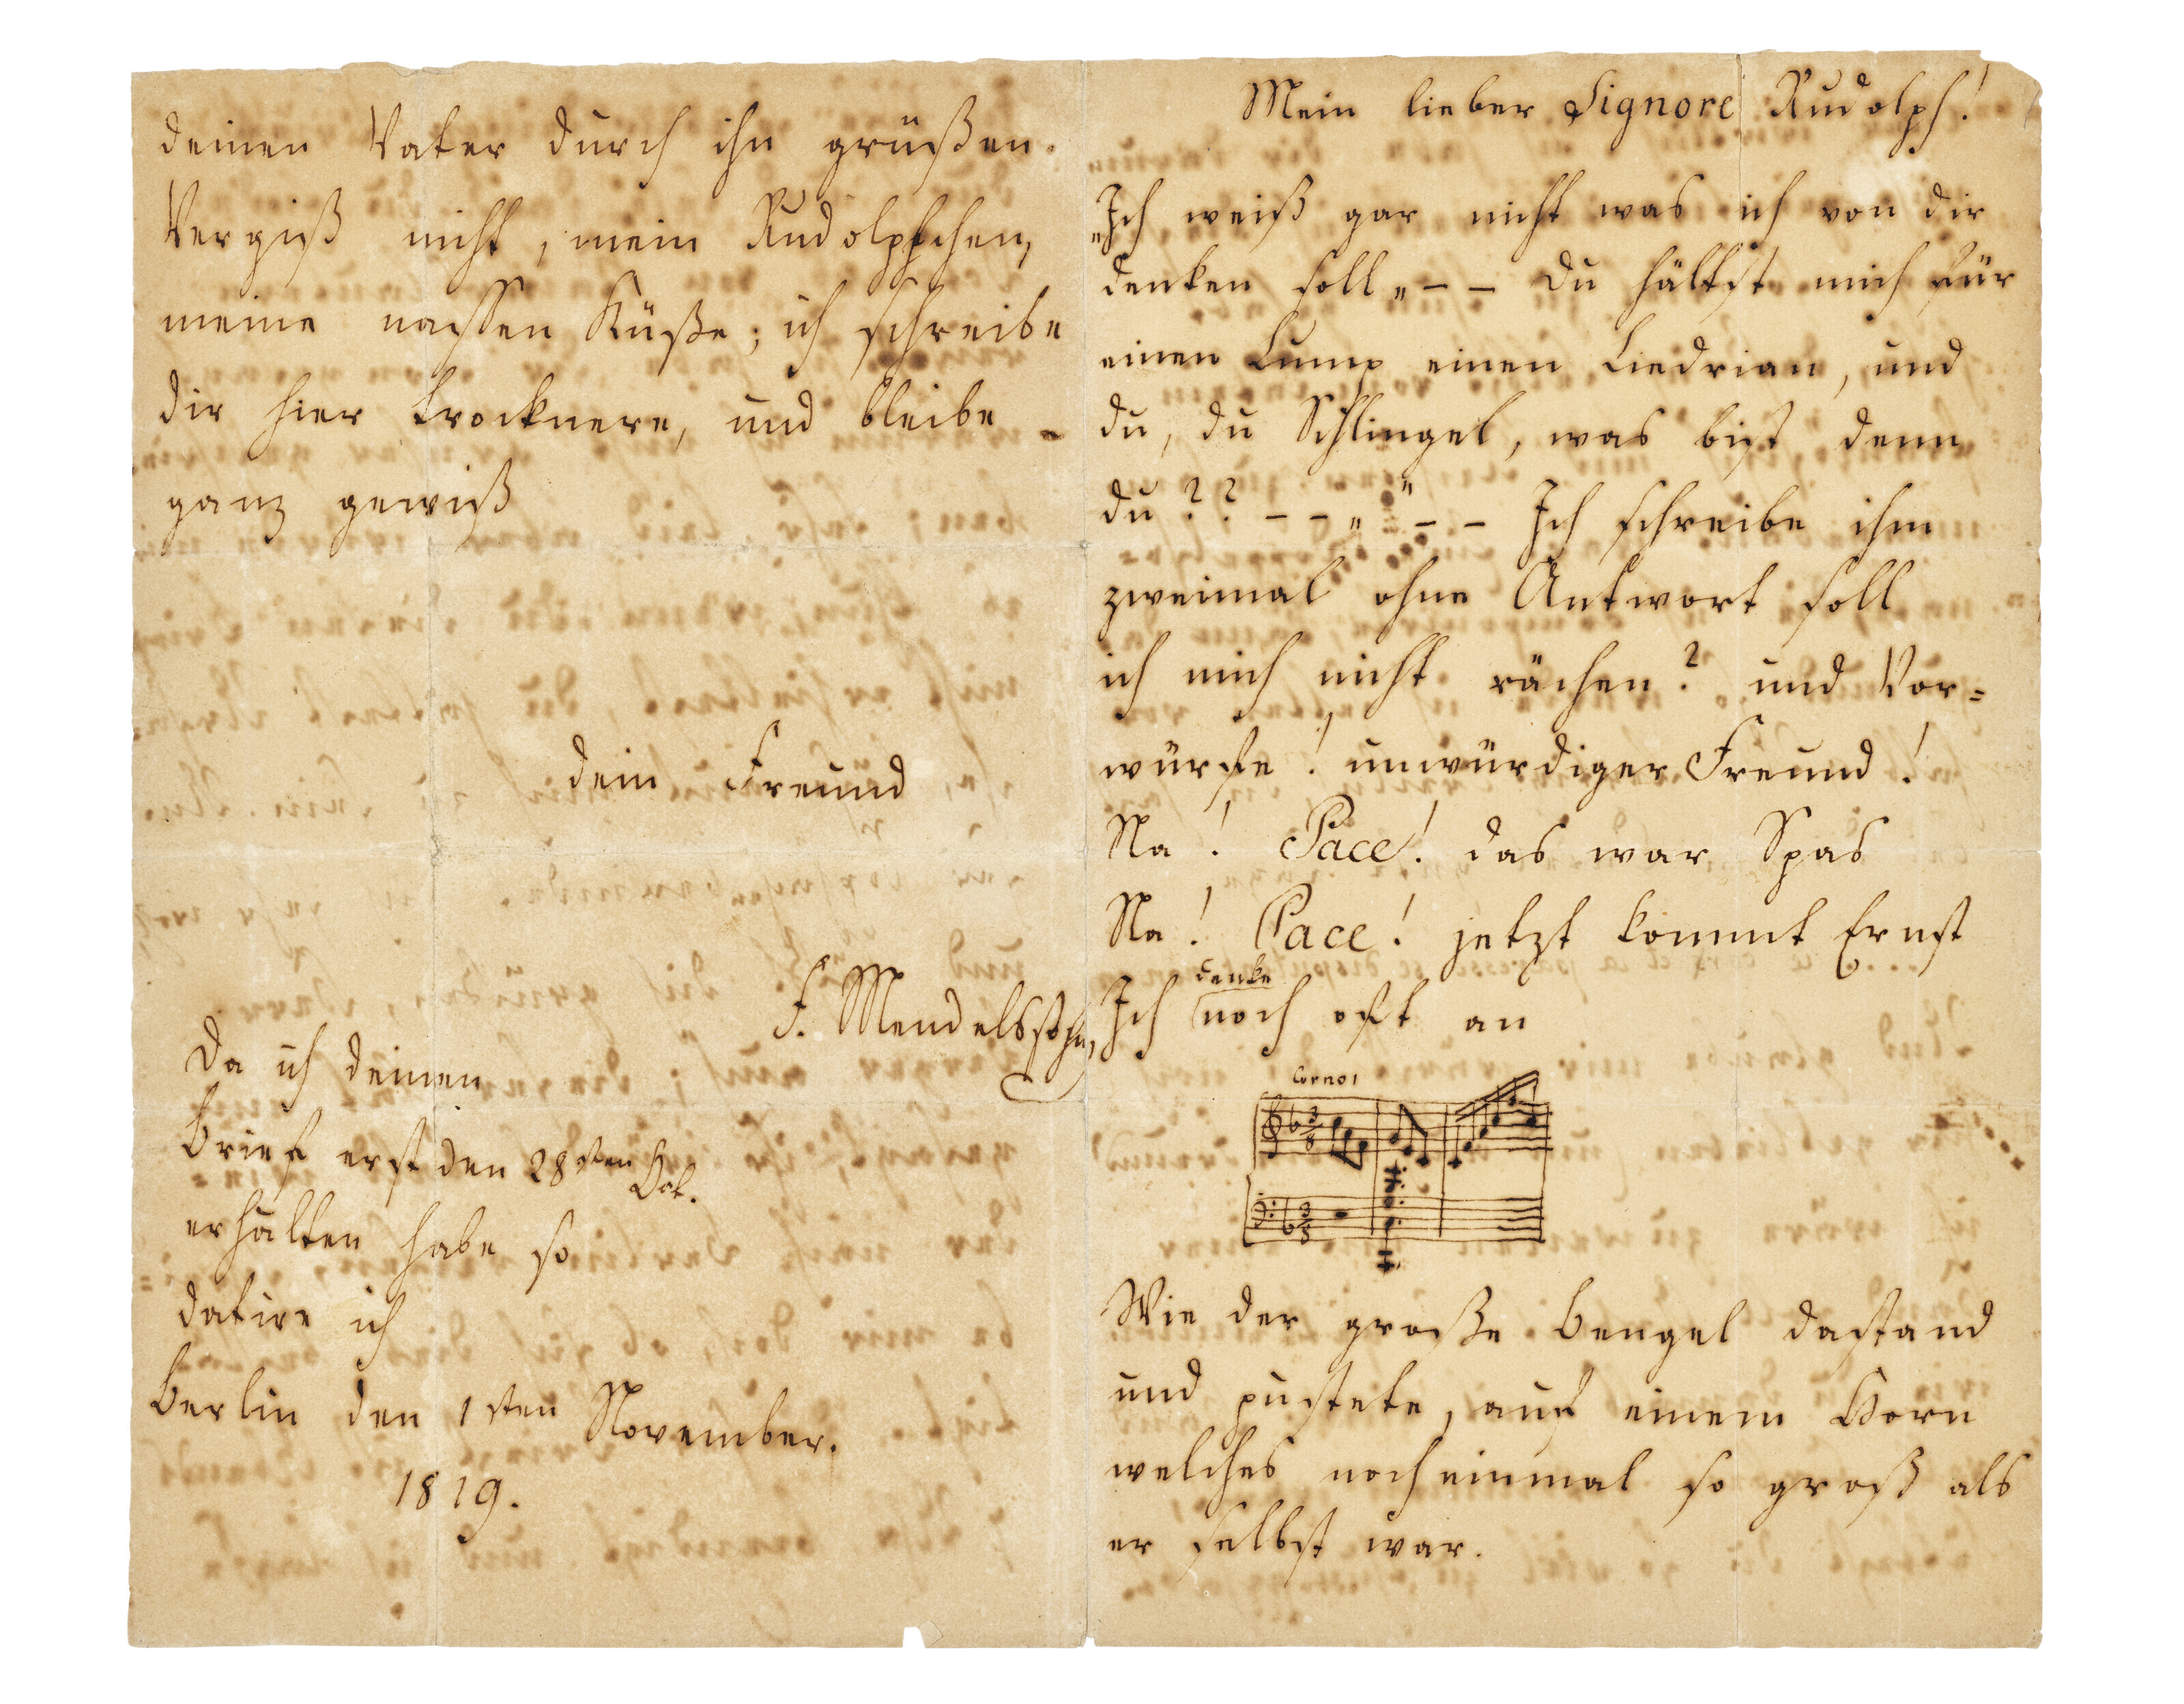 deinen Vater durch ihn grüßen.
Vergiß nicht, mein Rudolphchen,
meine nassen Küße; ich schreibe
dir hier trocknere, und bleibe
ganz gewiß
dein Freund
F. Mendelssohn
Da ich deinen
Brief erst den 28sten Oct.
erhalten habe so
datire ich
Berlin den 1sten November.
1819.
Mein lieber Signore Rudolph!
„Ich weiß gar nicht was ich von dir
denken soll„ – – Du hältst mich für
einen Lump einen Liedrian, und
du, du Schlingel, was bist denn
du?? – – „ " – – Ich schreibe ihm
zweimal ohne Antwort soll
ich mich nicht rächen? und Vor=
würfe! unwürdiger Freund!
Na! Pace! das war Spas
Na! Pace! jetzt kommt Ernst
Ich denke noch oft an
Corno 1
3/8
3/8
Wie der große Bengel dastand
und pustete, auf einem Horn
welches noch einmal so groß als
er selbst war.